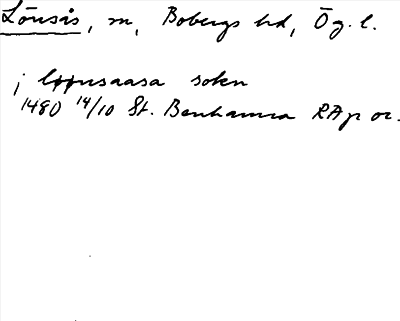 Lönsås, sn, Bobergs hd, Ög. l.
j løpnsaasa sokn
1480 14/10 St. Benhamra RAp or.